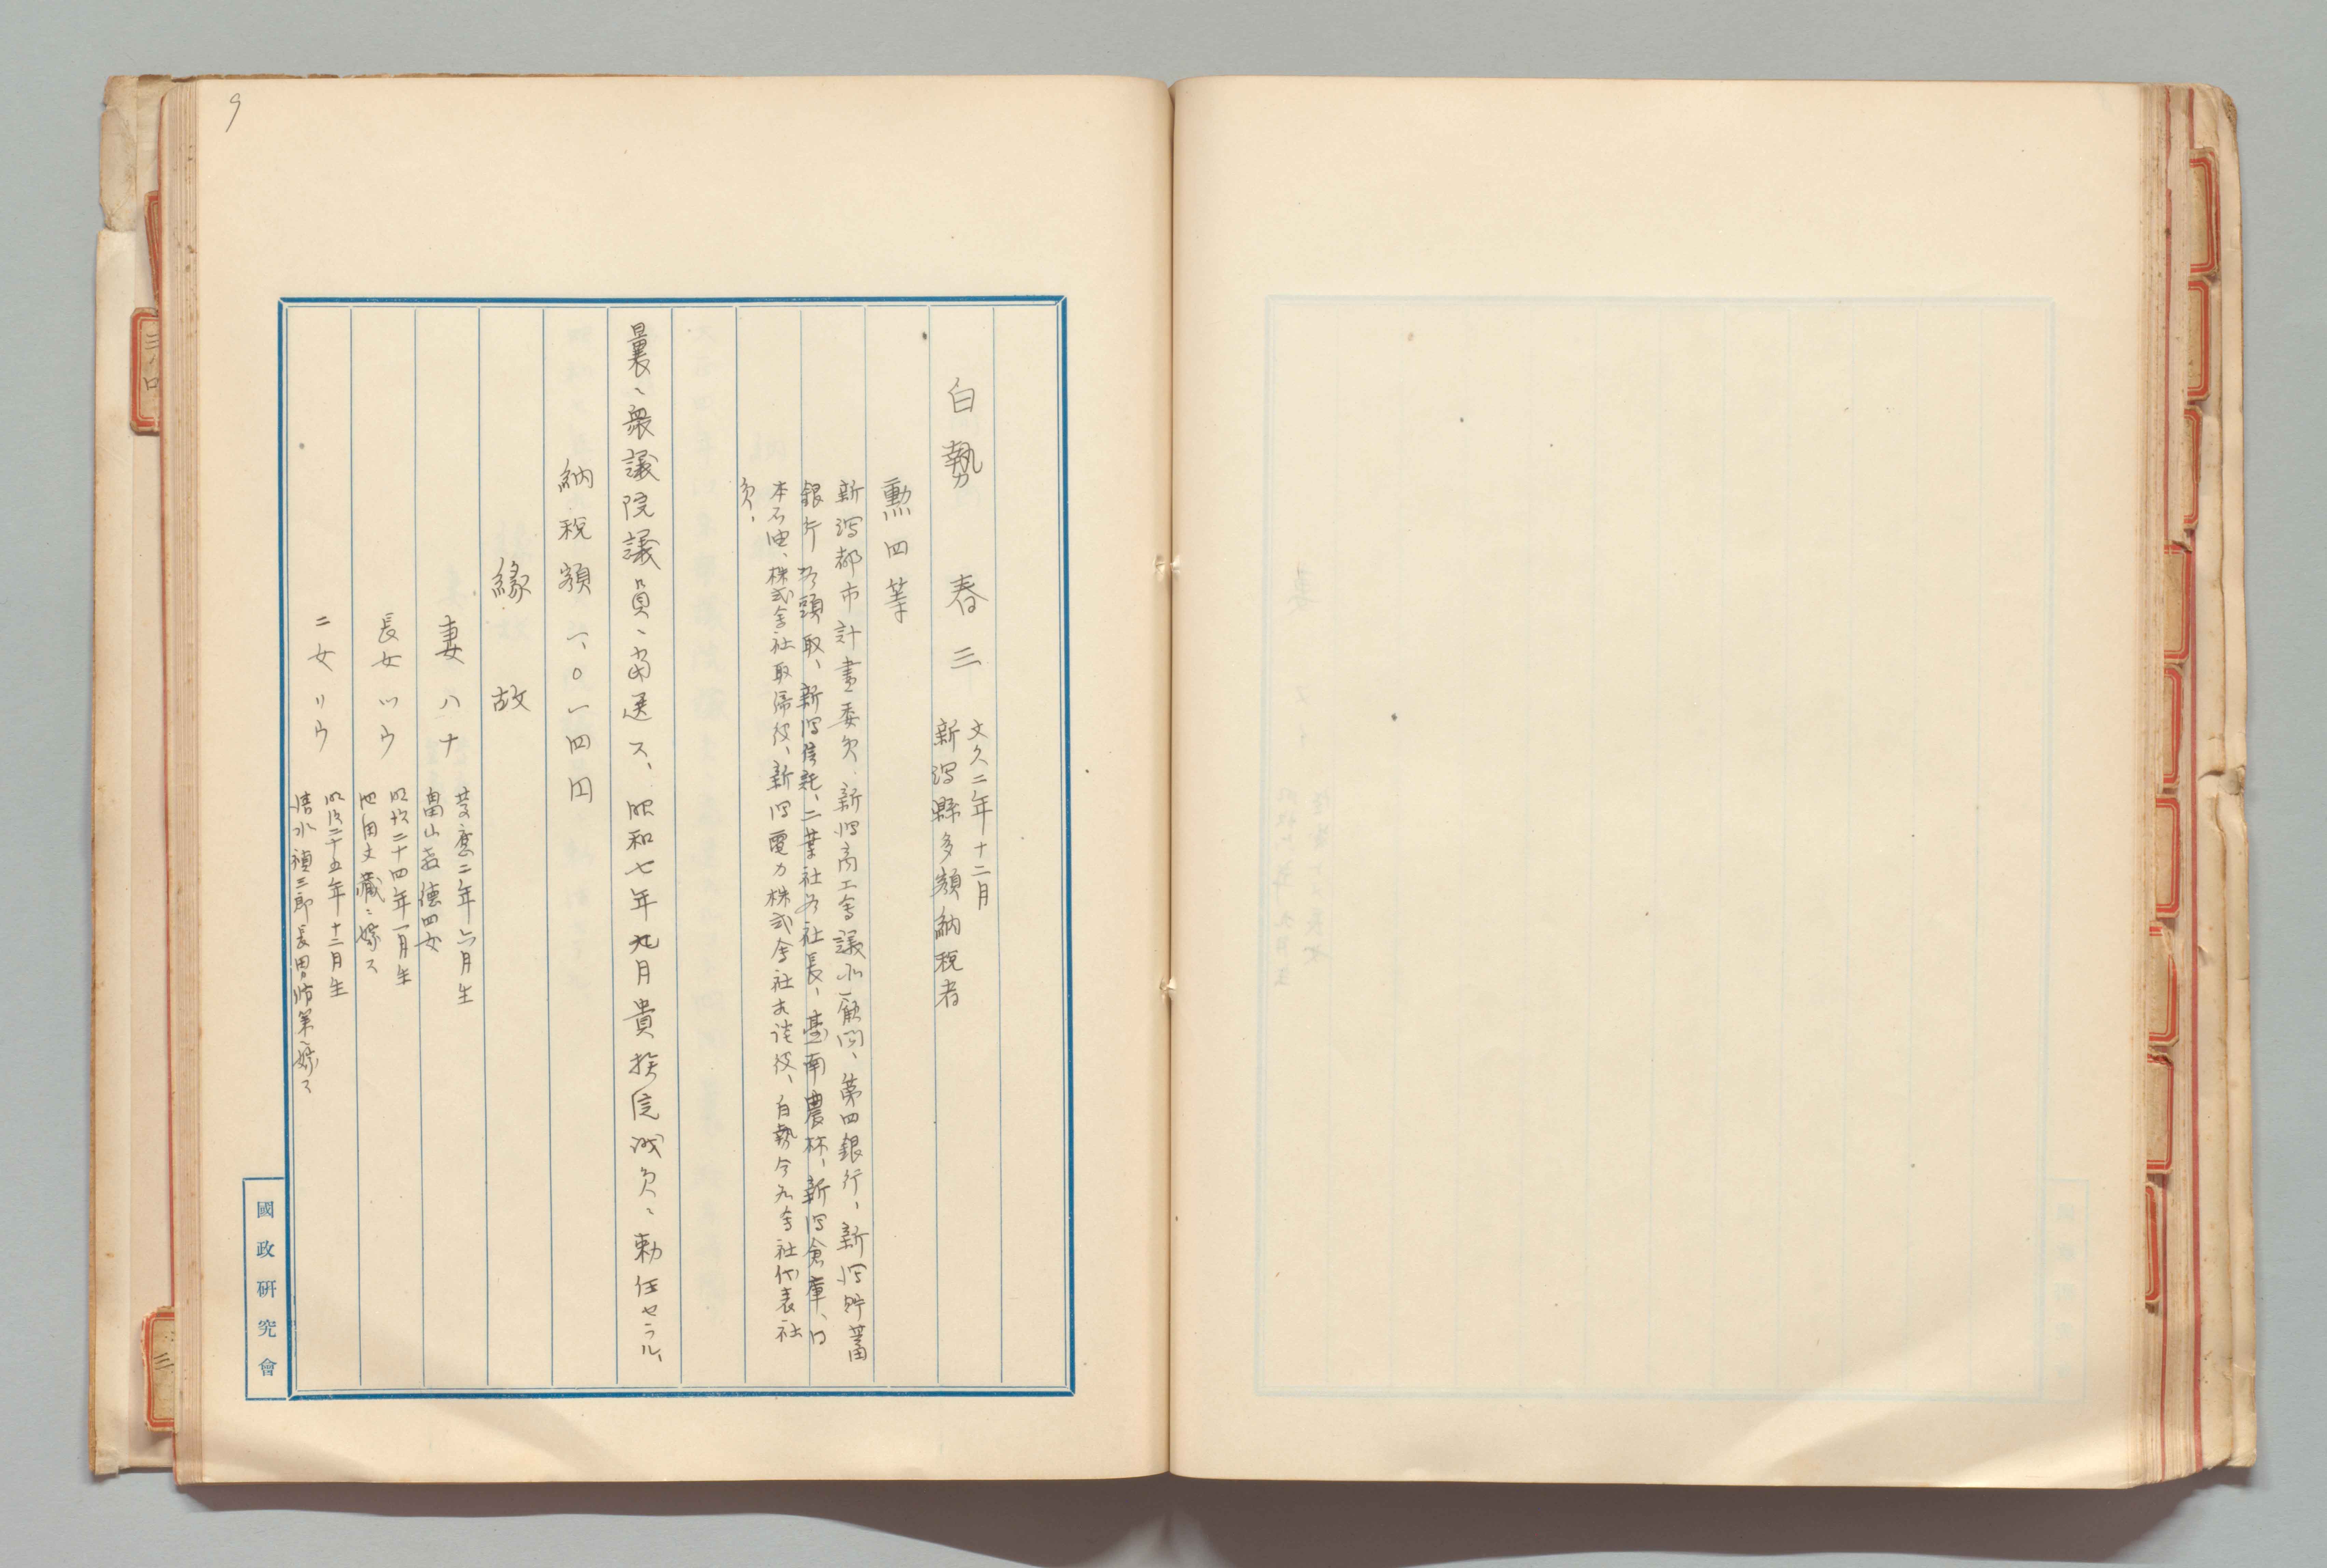 9
白勢春三
文久二年十二月
新潟縣多額納税者
勲四等
新潟都市計畫委員、新潟商工会議所顧問、第四銀行、新潟貯蓄
銀行各頭取、新潟信託、二葉社各社長、臺南農林、新潟倉庫、日
本石油、株式会社取締役、新潟電力株式会社相談役、白勢合名会社代表社
員、
曩ニ衆議院議員ニ當選ス、昭和七年九月貴族院議員ニ勅任セラル、
納税額一、〇一四円
縁故
妻ハナ
慶應二年六月生
畠山義徳四女
長女ツウ
明治二十四年一月生
池田文藏ニ嫁ス
二女リウ
明治二十五年十二月生
清水禎三郎長男 ニ嫁ス
國政研究會
三